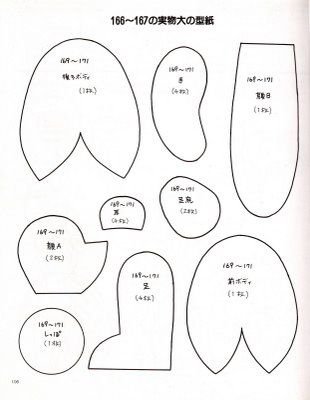 166〜167の実物大の型紙
169〜171
後ろボディ
(1枚)
169〜171
手
(4枚)
169〜171
顔B
(1枚)
169〜171
耳
(4枚)
169〜171
足底
(2枚)
169〜171
顔A
(2枚)
169〜171
しっぽ
(1枚)
169〜171
足
(4枚)
169〜171
前ボディ
(1枚)